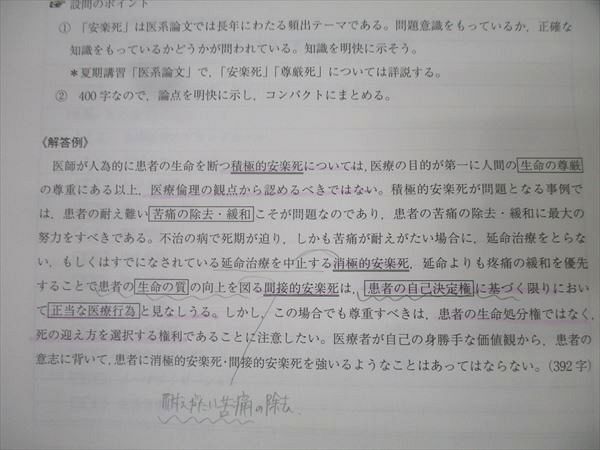 ☞ 設問のポイント
① 「安楽死」は医系論文では長年にわたる頻出テーマである。問題意識をもっているか，正確な
知識をもっているかどうかが問われている。知識を明快に示そう。
＊夏期講習「医系論文」で，「安楽死」「尊厳死」については詳説する。
② 400字なので，論点を明快に示し，コンパクトにまとめる。
《解答例》
医師が人為的に患者の生命を断つ積極的安楽死については，医療の目的が第一に人間の生命の尊厳
の尊重にある以上，医療倫理の観点から認めるべきではない。積極的安楽死が問題となる事例で
は，患者の耐え難い苦痛の除去・緩和こそが問題なのであり，患者の苦痛の除去・緩和に最大の
努力をすべきである。不治の病で死期が迫り，しかも苦痛が耐えがたい場合に，延命治療をとらな
い，もしくはすでになされている延命治療を中止する消極的安楽死，延命よりも疼痛の緩和を優先
することで患者の生命の質の向上を図る間接的安楽死は，患者の自己決定権に基づく限りにおい
て正当な医療行為と見なしうる。しかし，この場合でも尊重すべきは，患者の生命処分権ではなく，
死の迎え方を選択する権利であることに注意したい。医療者が自己の身勝手な価値観から，患者の
意志に背いて，患者に消極的安楽死・間接的安楽死を強いるようなことはあってはならない。（392字）
耐えがたい苦痛の除去